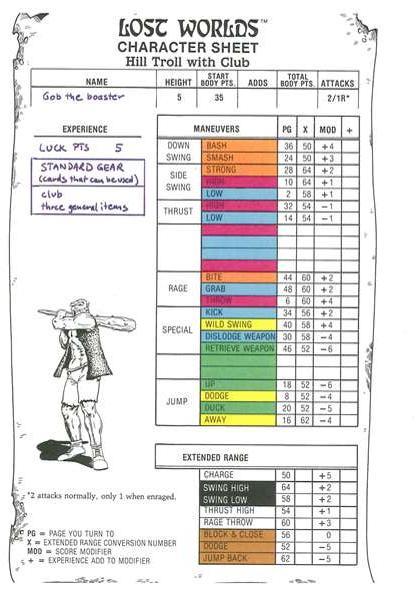 LOST WORLDS™
CHARACTER SHEET
Hill Troll with Club
NAME HEIGHT START BODY PTS. ADDS TOTAL BODY PTS. ATTACKS
Gob the boaster 5 35 2/1R*
EXPERIENCE
LUCK PTS 5
STANDARD GEAR
(cards that can be used)
club
three general items
MANEUVERS PG X MOD +
DOWN SWING
BASH 36 50 +4
SMASH 24 50 +3
SIDE SWING
STRONG 28 64 +2
HIGH 10 64 +1
LOW 2 58 +1
THRUST
HIGH 32 54 −1
LOW 14 54 −1
RAGE
BITE 44 60 +2
GRAB 48 60 +2
THROW 6 60 +4
SPECIAL
KICK 34 56 +2
WILD SWING 40 58 +4
DISLODGE WEAPON 30 58 −4
RETRIEVE WEAPON 46 52 −6
JUMP
UP 18 52 −6
DODGE 8 52 −4
DUCK 20 52 −5
AWAY 16 62 −4
EXTENDED RANGE
CHARGE 50 +5
SWING HIGH 64 +2
SWING LOW 58 +2
THRUST HIGH 54 +1
RAGE THROW 60 +3
BLOCK & CLOSE 56 0
DODGE 52 −5
JUMP BACK 62 −5
*2 attacks normally, only 1 when enraged.
PG = PAGE YOU TURN TO
X = EXTENDED RANGE CONVERSION NUMBER
MOD = SCORE MODIFIER
+ = EXPERIENCE ADD TO MODIFIER